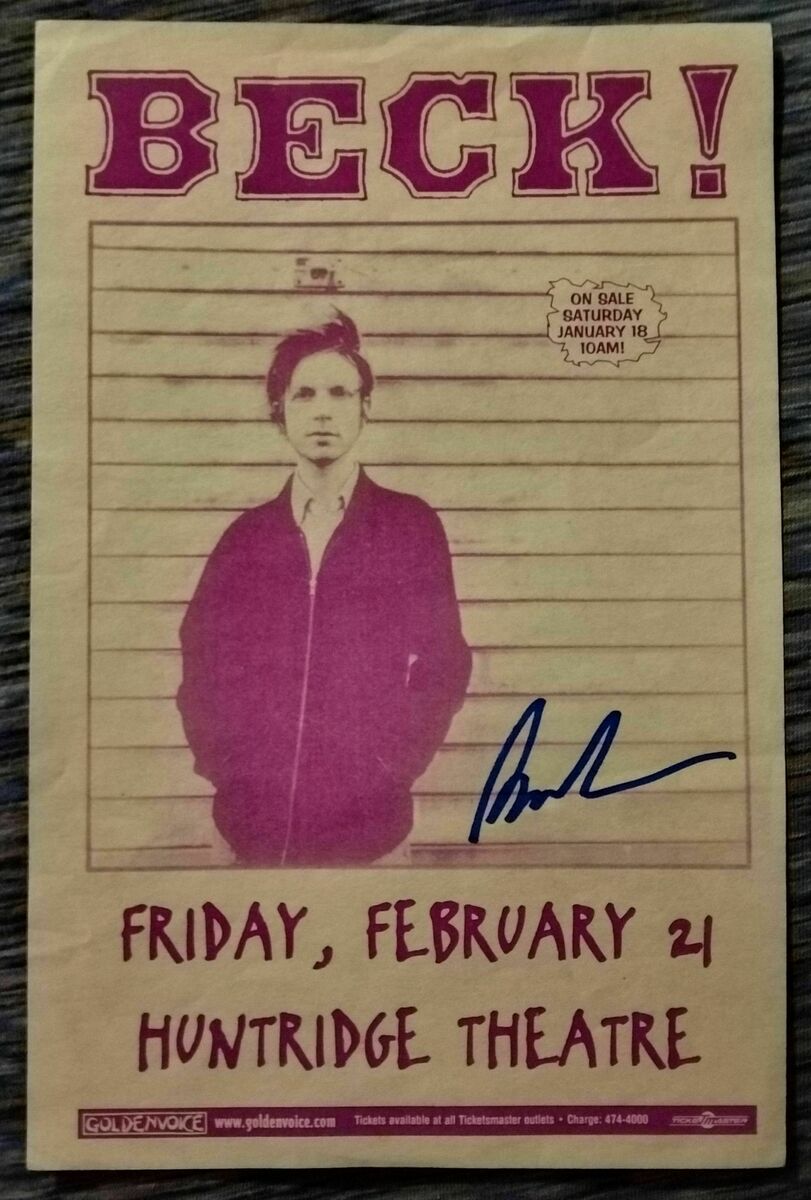 BECK!
ON SALE
SATURDAY
JANUARY 18
10AM!
FRIDAY, FEBRUARY 21
HUNTRIDGE THEATRE
GOLDENVOICE www.goldenvoice.com Tickets available at all Ticketsmaster outlets • Charge: 474-4000 TICKETMASTER